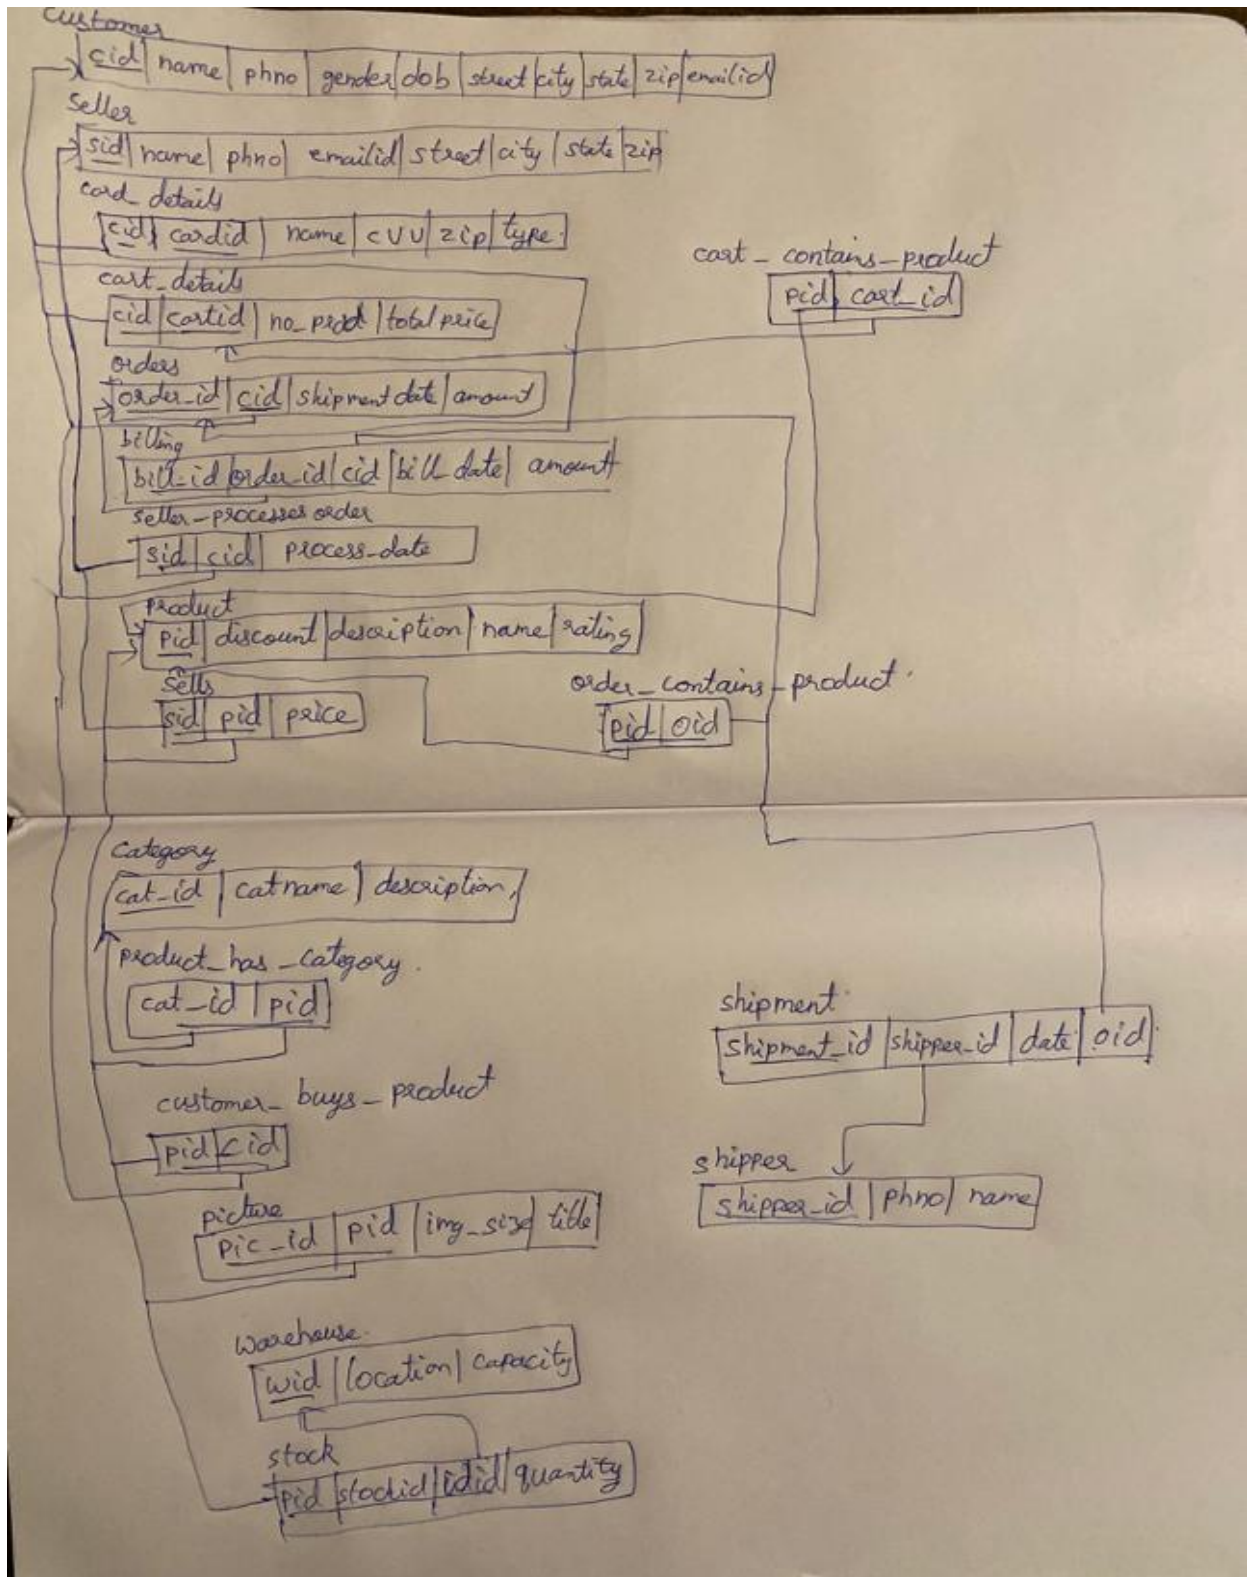 Customer
cid name phno gender dob street city state zip emailid
Seller
sid name phno emailid street city state zip
card_details
cid cardid name cvv zip type
cart_contains_product
pid cart_id
cart_details
cid cartid no_prod total price
orders
order_id cid shipment date amount
billing
bill_id order_id cid bill_date amount
seller_processes order
sid cid process_date
product
pid discount description name rating
sells
sid pid price
order_contains_product
pid oid
category
cat_id catname description
product_has_category
cat_id pid
shipment
shipment_id shipper_id date oid
customer_buys_product
pid cid
shipper
shipper_id phno name
picture
pic_id pid img_size title
warehouse
wid location capacity
stock
pid stockid quantity